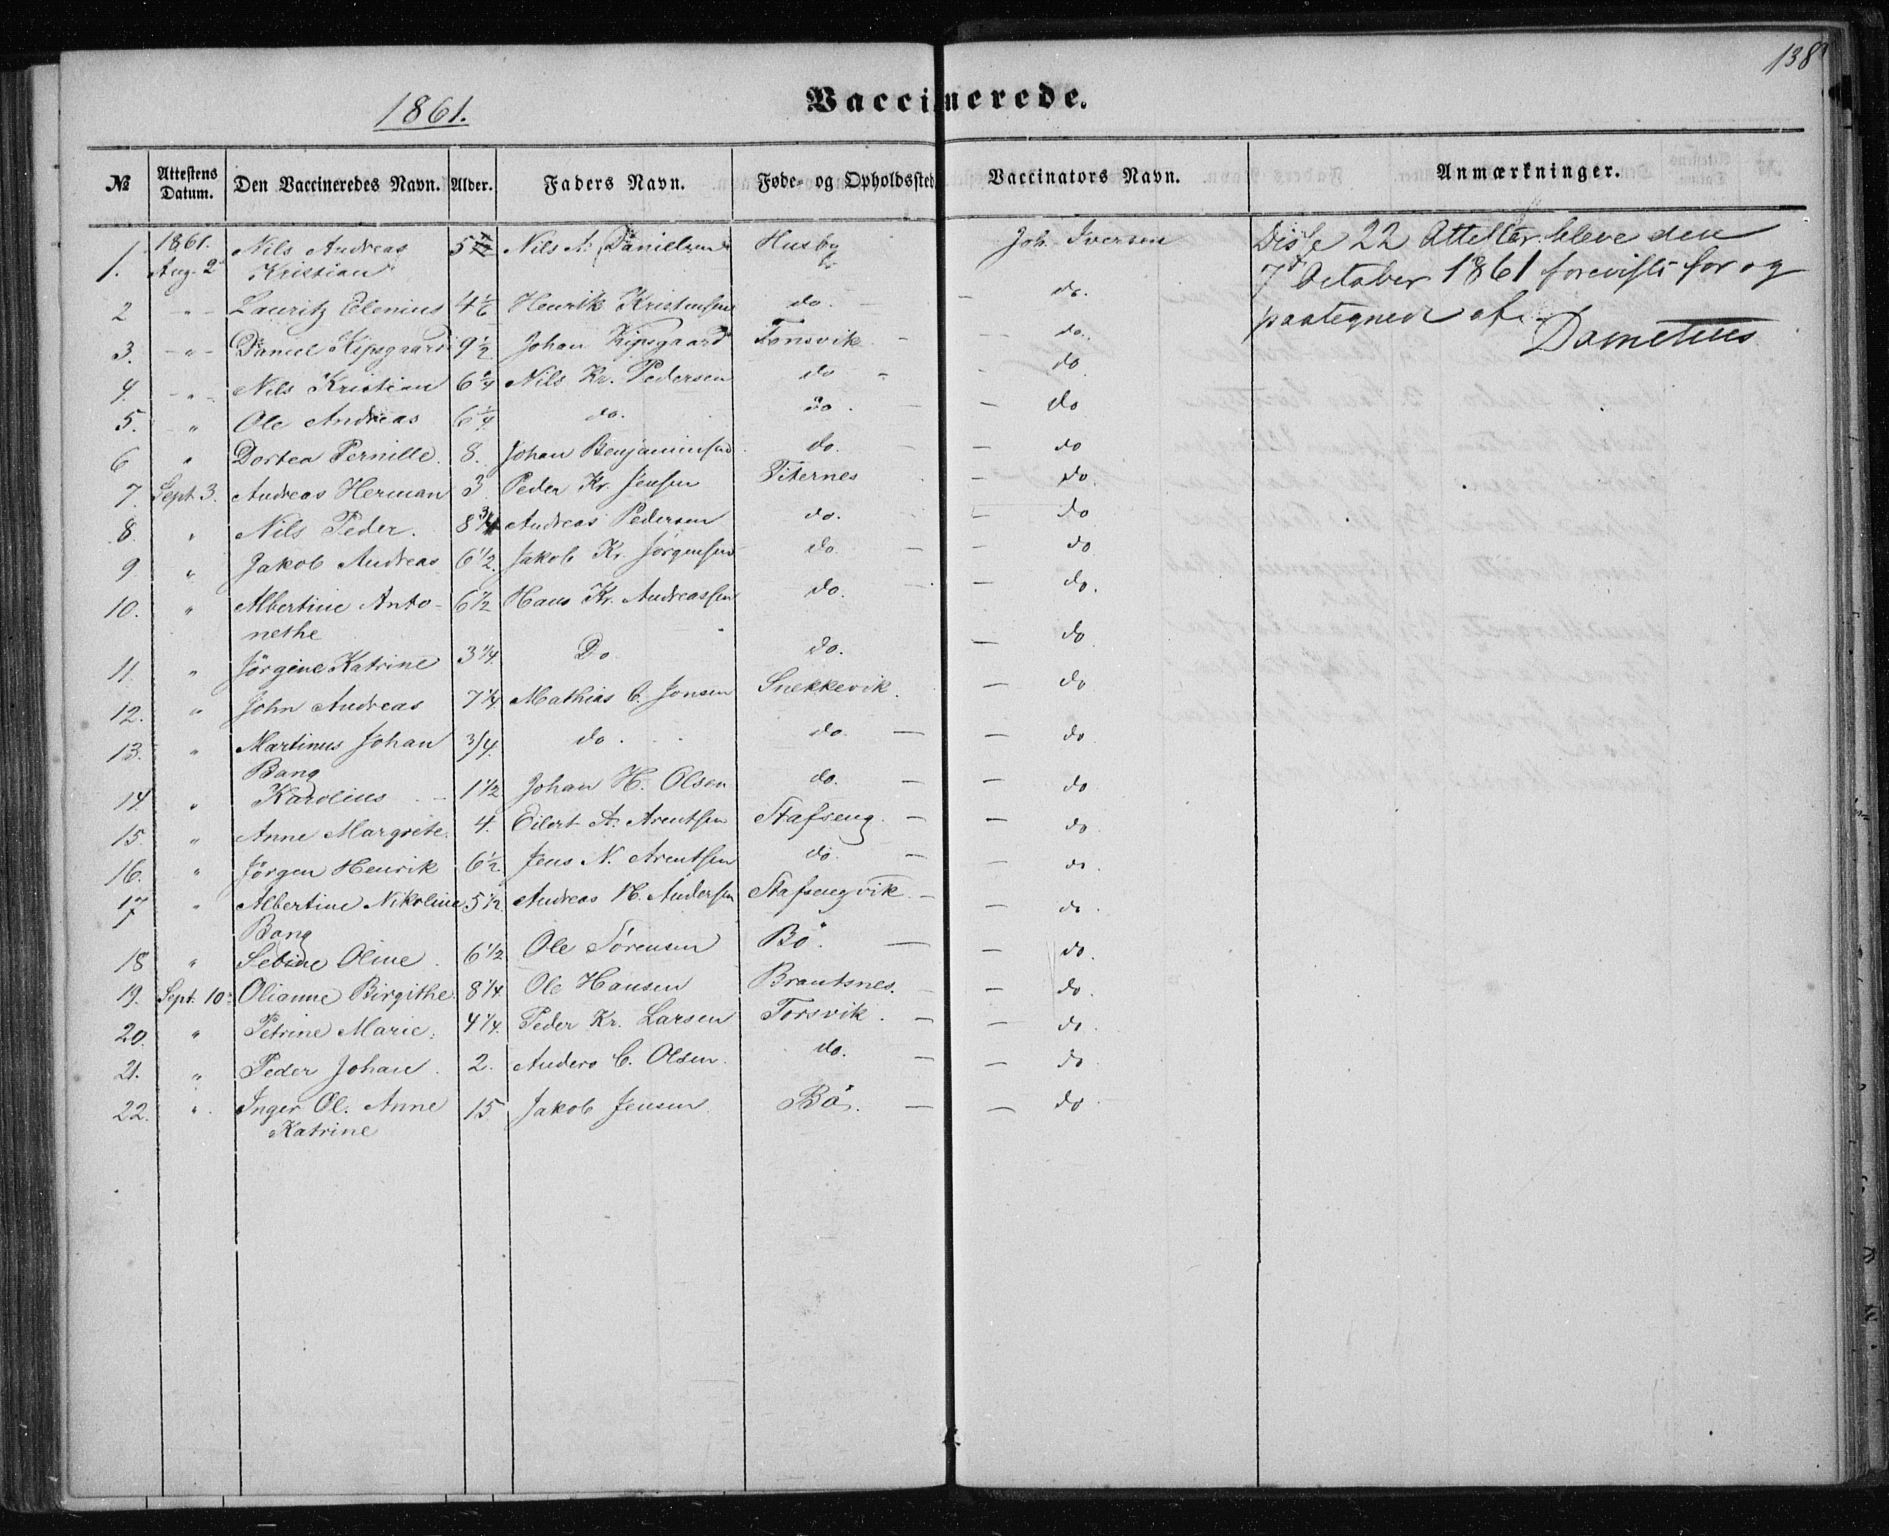 138
1861.
Vaccinerede.
№ Attestens Datum. Den Vaccineredes Navn. Alder. Faders Navn. Føde- og Opholdssted Vaccinators Navn. Anmærkninger.
1. 1861. Aug. 2 Nils Andreas Kristian 5 1/2 Nils A. Danielsen Husby Joh. Iversen
Disse 22 Attester bleve den
7de October 1861 foreviste for og
paategnede af
2 " Lauritz Elenius 4 Henrik Kristensen do. do.
3. " Daniel Kipsgaard 9 1/2 Johan Kipsgaard Tonsvik do.
4. " Nils Kristian 6 Nils Kr. Pedersen do do
5. " Ole Andreas 6 do. do. do
6 " Dortea Pernille. 8. Johan Benjaminsen do. do
7. Sept. 3. Andreas Herman 3 Peder Kr. Jensen Titernes do.
8. " Nils Peder. 8 3/4 Andreas Pedersen do. do
9 " Jakob Andreas 6 1/2. Jakob Kr. Jørgensen do do
10. " Albertine Anto-
nethe 6 1/2 Hans Kr. Andreassen do. do.
11. " Jørgine Katrine 3 1/4. Do do. do
12. " John Andreas 7 1/4 Mathias C. Jonsen Snekkevik. do
13. " Martinus Johan
Bang 3/4. do. do. do
14. " Karolius 1 1/2 Johan H. Olsen do. do
15. " Anne Margrete. 4. Eilert A. Arentsen Stafseng. do
16. " Jørgen Henrik 6 1/2. Jens N. Arentsen do. do
17 " Albertine Nikoline
Bang 5 1/2. Andreas H. Andersen Stafsengvik. do.
18 " Sebine Oline. 6 1/2 Ole Sørensen Bø. do.
19. Sept. 10 Olianne Birgithe. 8 1/4. Ole Hansen Brautsnes. do.
20. " Petrine Marie. 4 1/4. Peder Kr. Larsen Torsvik. do.
21. " Peder Johan. 2. Anders C. Olsen. do. do
22. " Inger Ol. Anne
Katrine 15 Jakob Jensen Bø. do